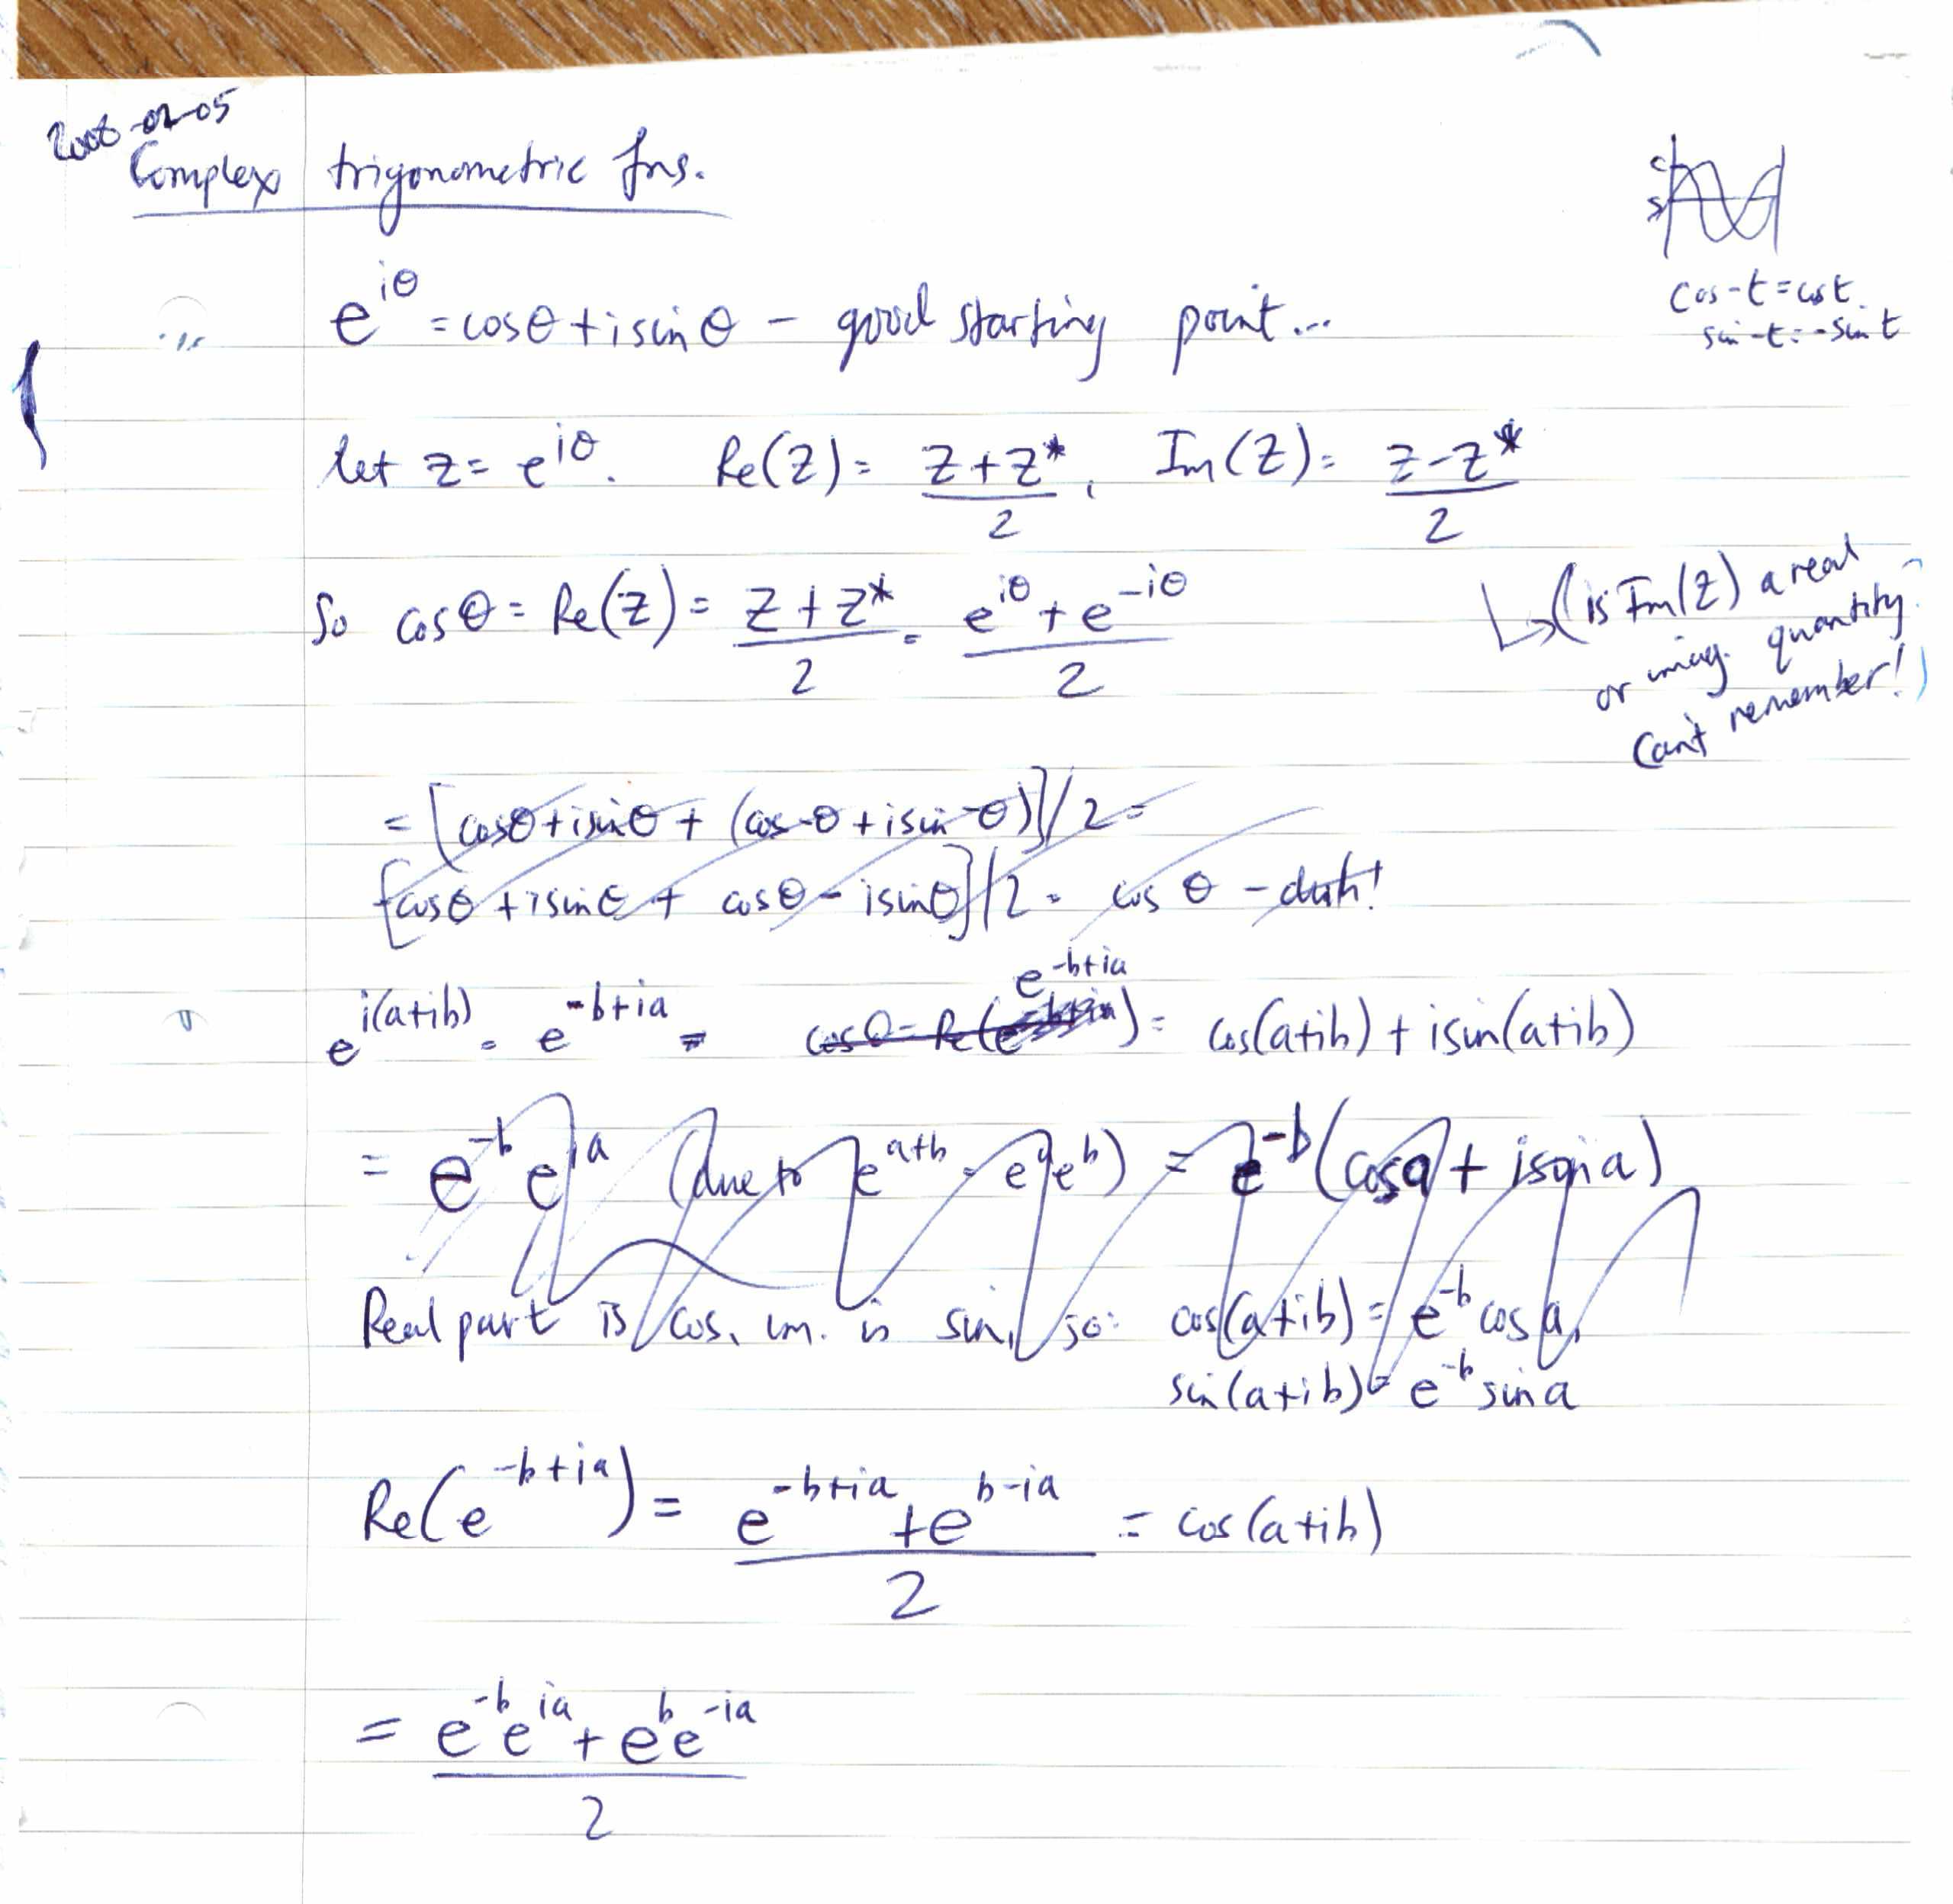 Complex trigonometric fns.
c
s
cos-t = cost
sin-t = -sin t
e^{iθ} = cosθ + i sin θ - good starting point...
let z = e^{iθ}. Re(z) = (z + z*)/2, Im(z) = (z - z*)/2
(is Im(z) a real
or imag. quantity
Can't remember!)
So cos θ = Re(z) = (z + z*)/2 = (e^{iθ} + e^{-iθ})/2
= [cosθ + isinθ + (cos-θ + isin-θ)]/2 =
[cosθ + isinθ + cosθ - isinθ]/2 = cos θ - duh!
e^{i(a+ib)} = e^{-b+ia} = cosθ = Re( e^{-b+ia} ) = cos(a+ib) + isin(a+ib)
= e^{-b} e^{ia} (due to e^{a+b} = e^a e^b) = e^{-b}(cosa + isina)
Real part is cos, im. is sin, so: cos(a+ib) = e^{-b} cos a,
sin(a+ib) = e^{-b} sin a
Re(e^{-b+ia}) = (e^{-b+ia} + e^{b-ia})/2 = cos(a+ib)
= (e^{-b}e^{ia} + e^{b}e^{-ia})/2